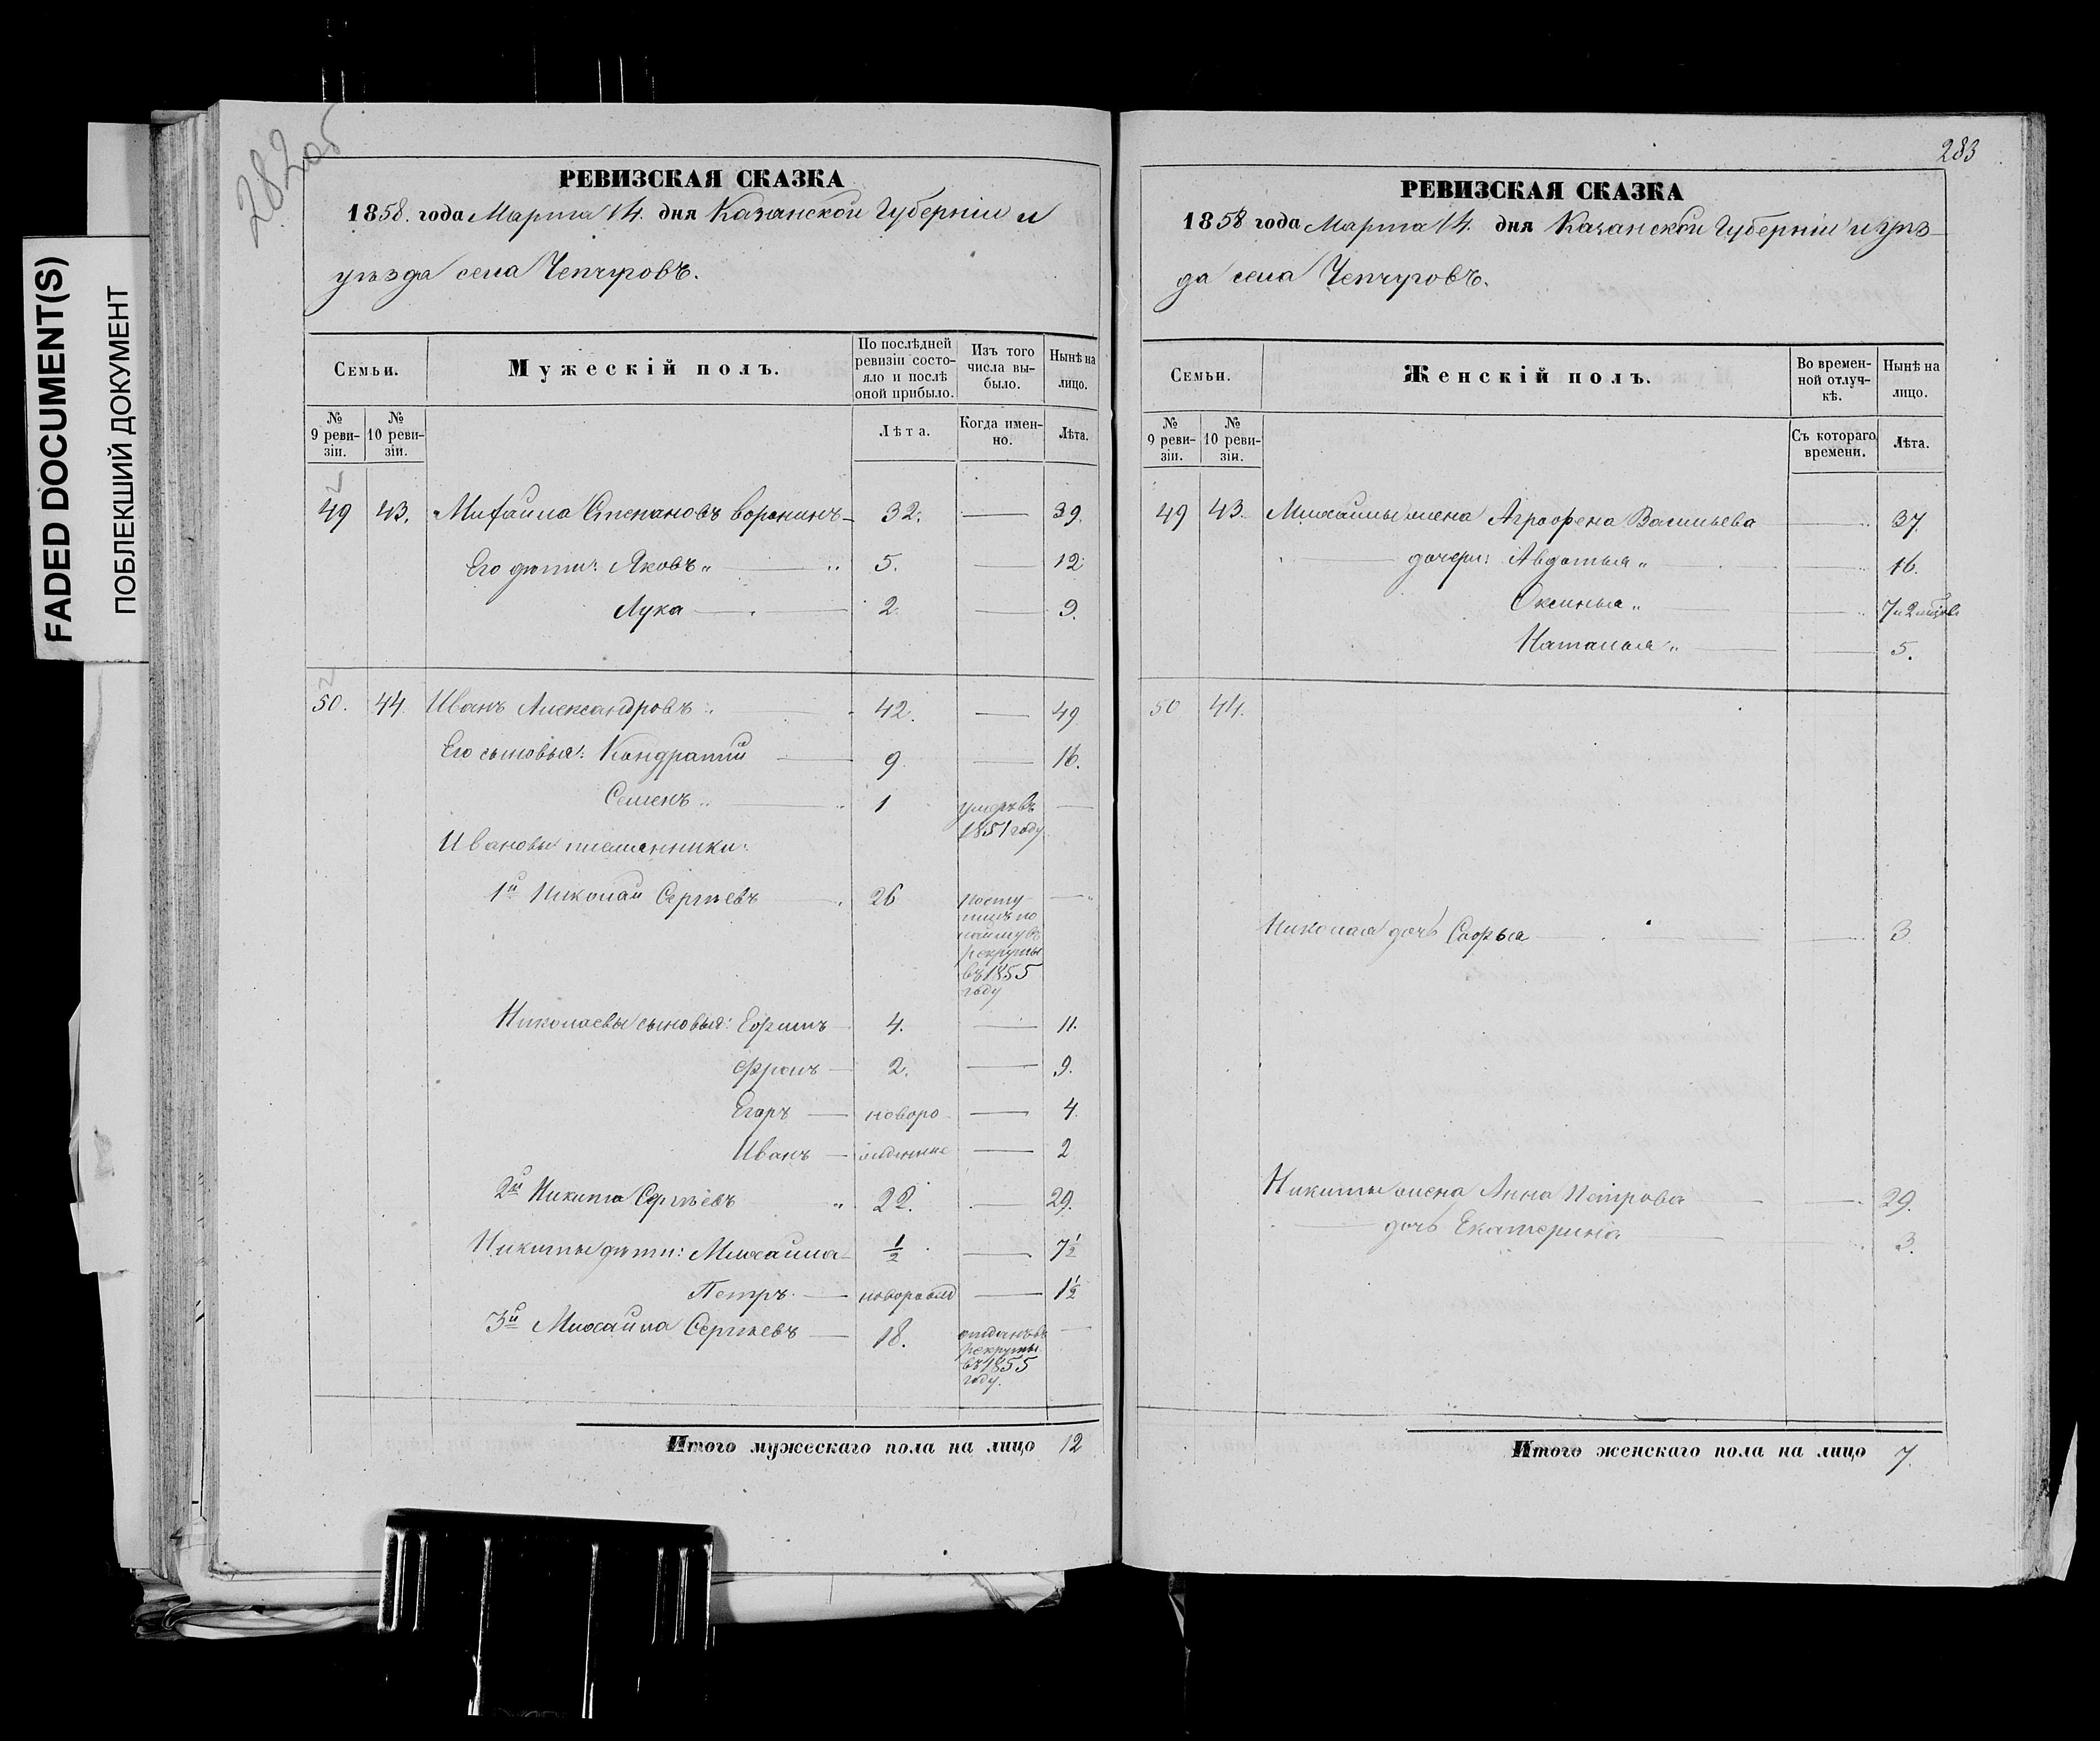 FADED DOCUMENT(S)
ПОБЛЕКШИЙ ДОКУМЕНТ
282об
РЕВИЗСКАЯ СКАЗКА
1858. года Марта 14. дня Казанской Губерніи и
уѣзда села Чепчуговъ.
Семьи.
Мужескій полъ.
По послѣдней ревизіи состо-
яло и послѣ
оной прибыло.
Изъ того
числа вы-
было.
Нынѣ на
лицо.
№
9 реви-
зіи.
№
10 реви-
зіи.
Лѣта.
Когда имен-
но.
Лѣта.
49 43. Михайла Степановъ Воронинъ 32. 39.
Его дѣти: Яковъ 5. 12
Лука 2. 9.
50. 44. Иванъ Александровъ 42. 49
Его сыновья: Кондратій 9 16.
Семенъ 1 умеръ въ
1851 году
Ивановы племянники:
1й Николай Сергѣевъ 26 Посту
пилъ по
найму въ
рекруты
въ 1855
году
Николаевы сыновья: Ефимъ 4. 11.
Фролъ 2. 9.
Егоръ новоро 4.
Иванъ жденные 2
2й Никита Сергѣевъ 22. 29.
Никиты дѣти: Михайла 1/2 7 1/2
Петръ новорожд 1 1/2
3й Михайла Сергѣевъ 18. отданъ въ
рекруты
въ 1855
году.
Итого мужескаго пола на лицо 12
283
РЕВИЗСКАЯ СКАЗКА
1858 года Марта 14. дня Казанской Губерніи и уѣз-
да села Чепчуговъ.
Семьи.
Женскій полъ.
Во времен-
ной отлуч-
кѣ.
Нынѣ на
лицо.
№
9 реви-
зіи.
№
10 реви-
зіи.
Съ котораго
времени.
Лѣта.
49 43. Михайлы жена Аграфена Васильева 37.
дочери: Авдотья 16.
Оксинья 7 и 2 мѣсяц
Наталья 5.
50 44.
Николая дочь Софья 3
Никиты жена Анна Петрова 29.
дочь Екатерина 3.
Итого женскаго пола на лицо 7.